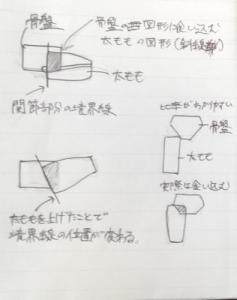 骨盤
骨盤の四図形に食い込む
太ももの図形(斜線部)
太もも
関節部分の境界線
比率がわかりやすい
骨盤
太もも
実際は食い込む
太ももを上げたことで
境界線の位置が変わる。